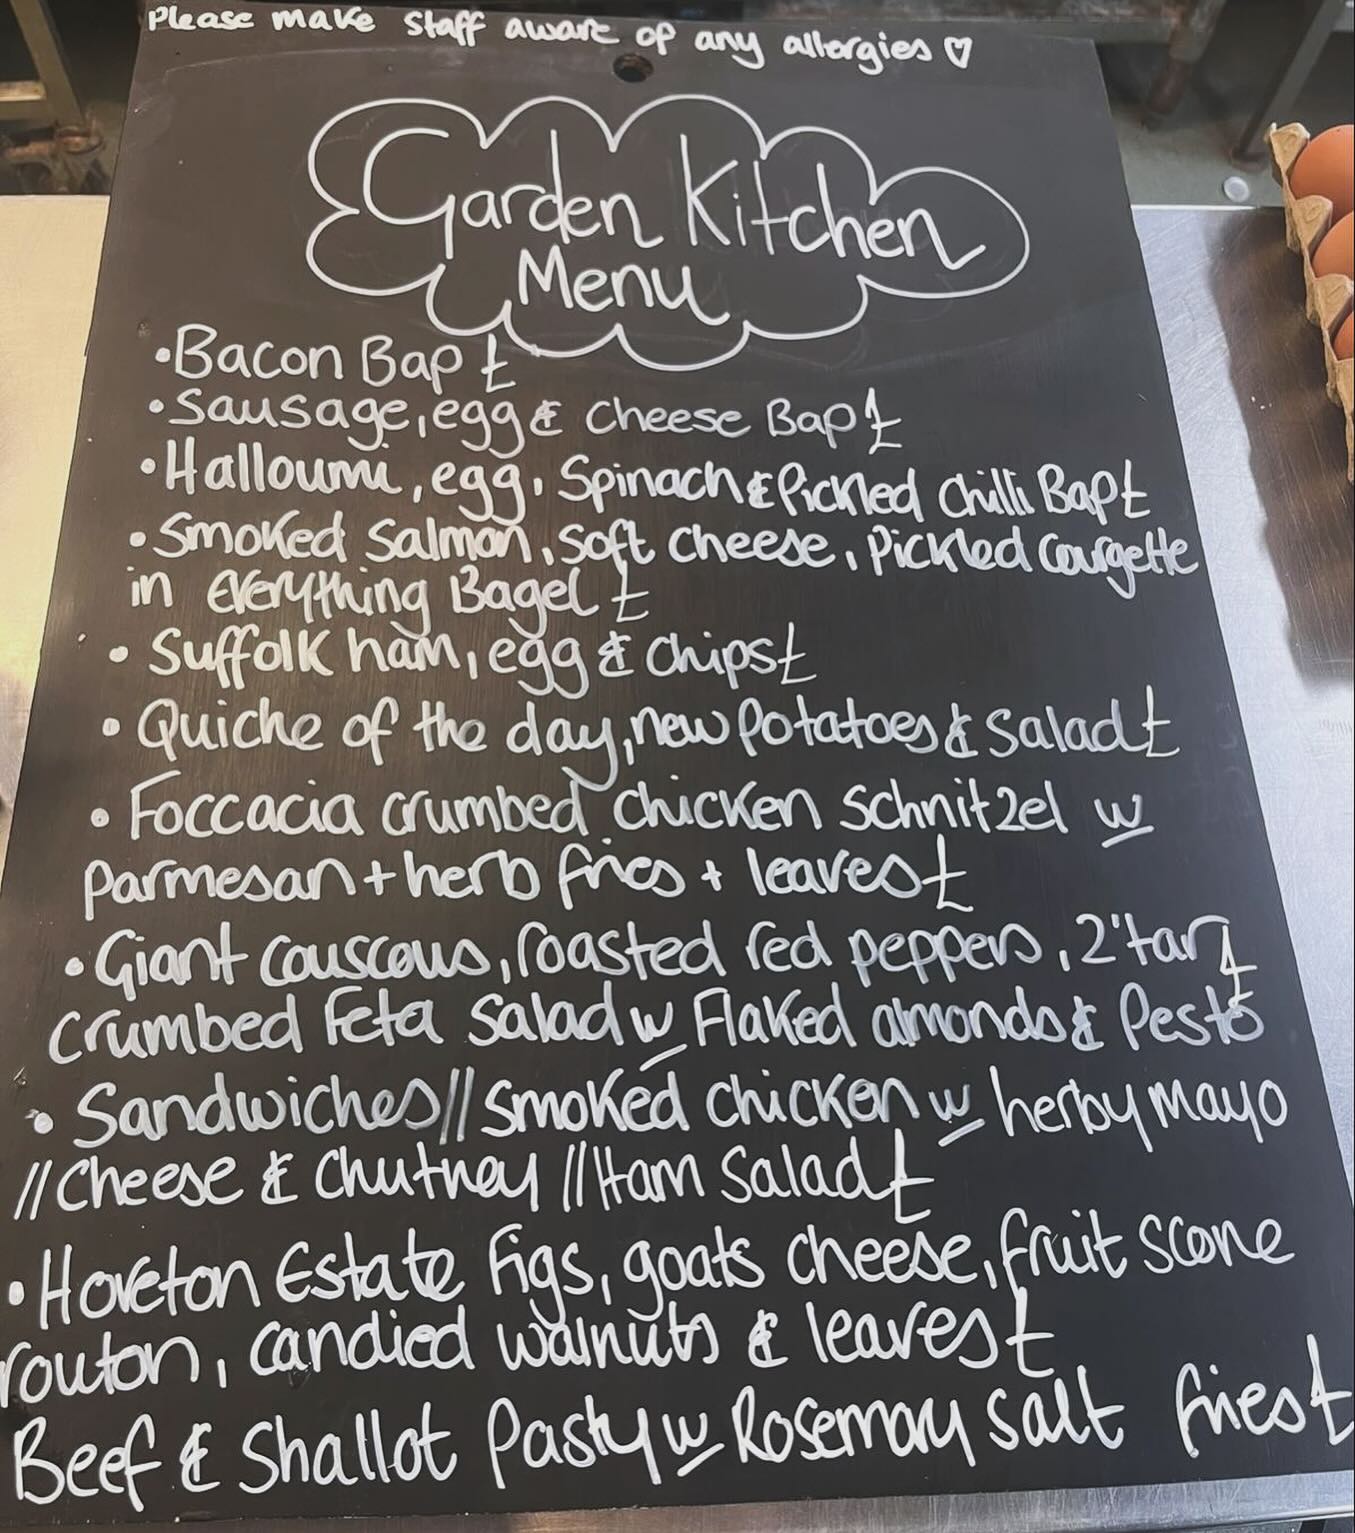 Please make staff aware of any allergies ♡
Garden Kitchen
Menu
•Bacon Bap £
•Sausage, egg & cheese Bap £
•Halloumi, egg, Spinach & Pickled chilli Bap £
•Smoked Salmon, Soft cheese, Pickled Courgette
in Everything Bagel £
•Suffolk ham, egg & chips £
•Quiche of the day, new potatoes & salad £
•Foccacia crumbed chicken Schnitzel w
parmesan + herb fries + leaves £
•Giant couscous, roasted red peppers, Za'tar £
crumbed Feta salad w Flaked almonds & Pesto
•Sandwiches // Smoked chicken w herby mayo
// Cheese & Chutney // Ham Salad £
•Hoveton Estate Figs, goats cheese, fruit scone
routon, candied walnuts & leaves £
Beef & Shallot Pasty w Rosemary salt fries £